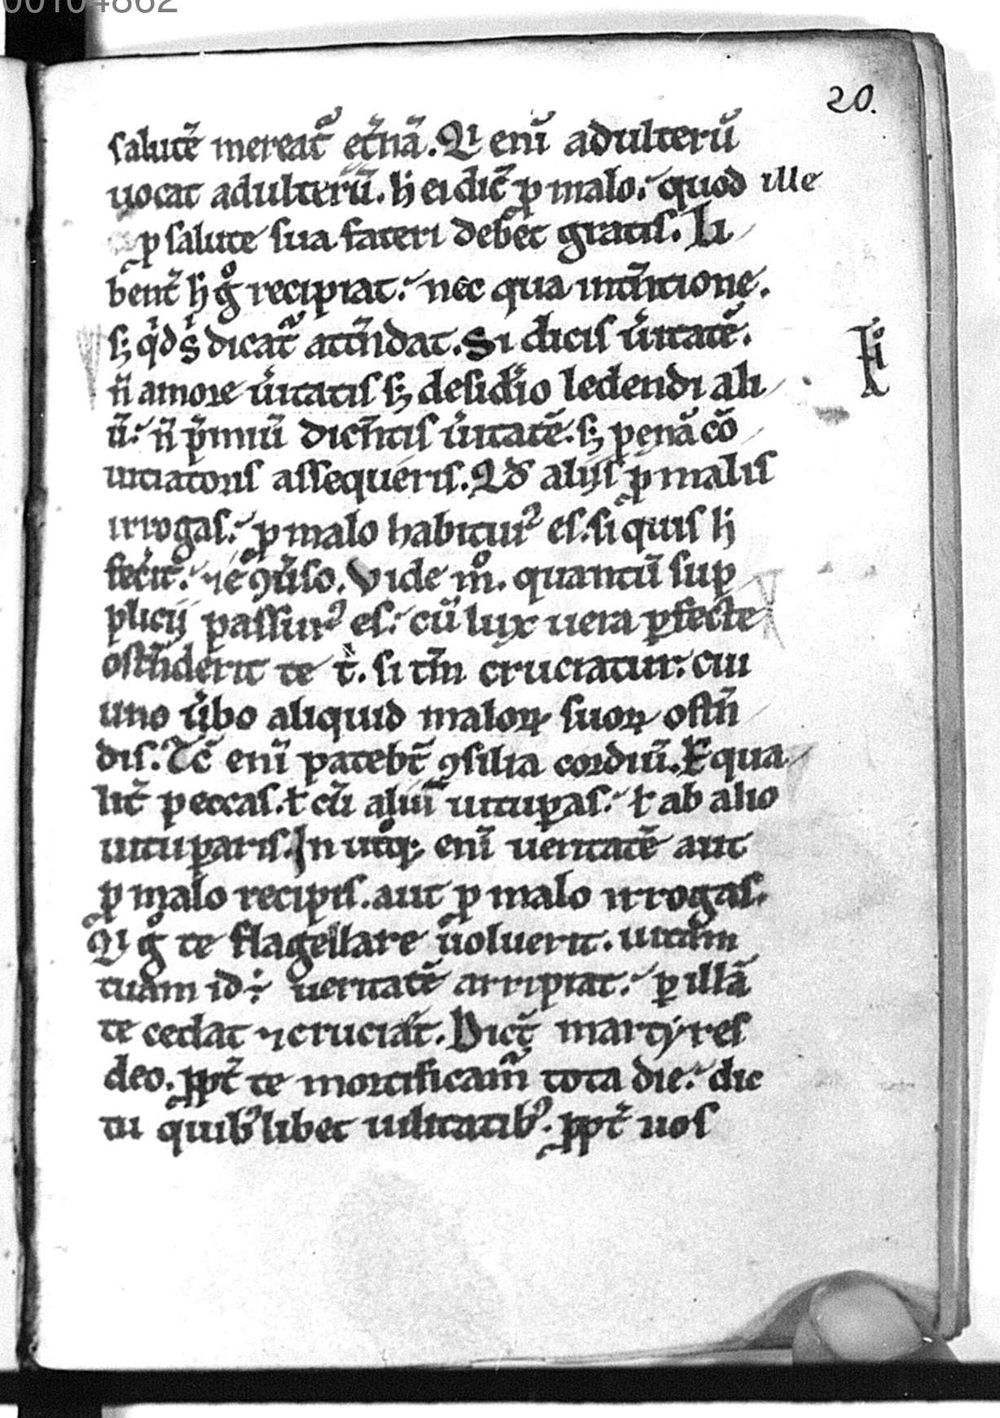 00104862
20.
salutē mereat᷑ et̄nā. Qi eni᷑ adulterū
uocat adulterū. h̄ ei dic̄ ꝓ malo. quod ille
ꝓ salute sua fateri debet gratis. Li
bent̄ h̄ gͦ recipiat. nec qua int̄ntione.
sꝫ qͥd sͥ dicat᷑ att̄ndat. Si dicis ūitatē.
n̄ amore ūitatis sꝫ desid̄io ledendi ali
ū. n̄ p̄miū dic̄ntis ūitatē. sꝫ penā cō
uitiatoris assequeris. Qd̄ alijs ꝓ malis
irrogas. ꝓ malo habiturꝰ es. si quis h̄
fec̄it. ⁊ e ꝯūso. Vide mͦ. quantū sup
plicij passurꝰ es. cū lux uera ꝑfecte
ost̄nderit te t᷑. si tm̄ cruciatur. cui
uno ūbo aliquid maloꝝ suoꝝ ostn̄
dis. Tc̄ eni᷑ patebt̄ ꝯsilia cordiū. Equa
lit̄ peccas. ł cū aliū uituꝑas. ł ab alio
uituꝑaris. In utͦqꝫ eni᷑ ueritatē aut
ꝓ malo recipis. aut ꝓ malo irrogas.
Qi gͦ te flagellare uoluerit. uitam
tuam id ÷ ueritatē arripiat. ꝑ illā
te cedat ⁊ cruciat. Dict̄ martyres
deo. ꝓpt̄ te mortificam᷑ tota die. dic
tu quibꝰlibet uilitatibꝰ. ꝓpt̄ uos